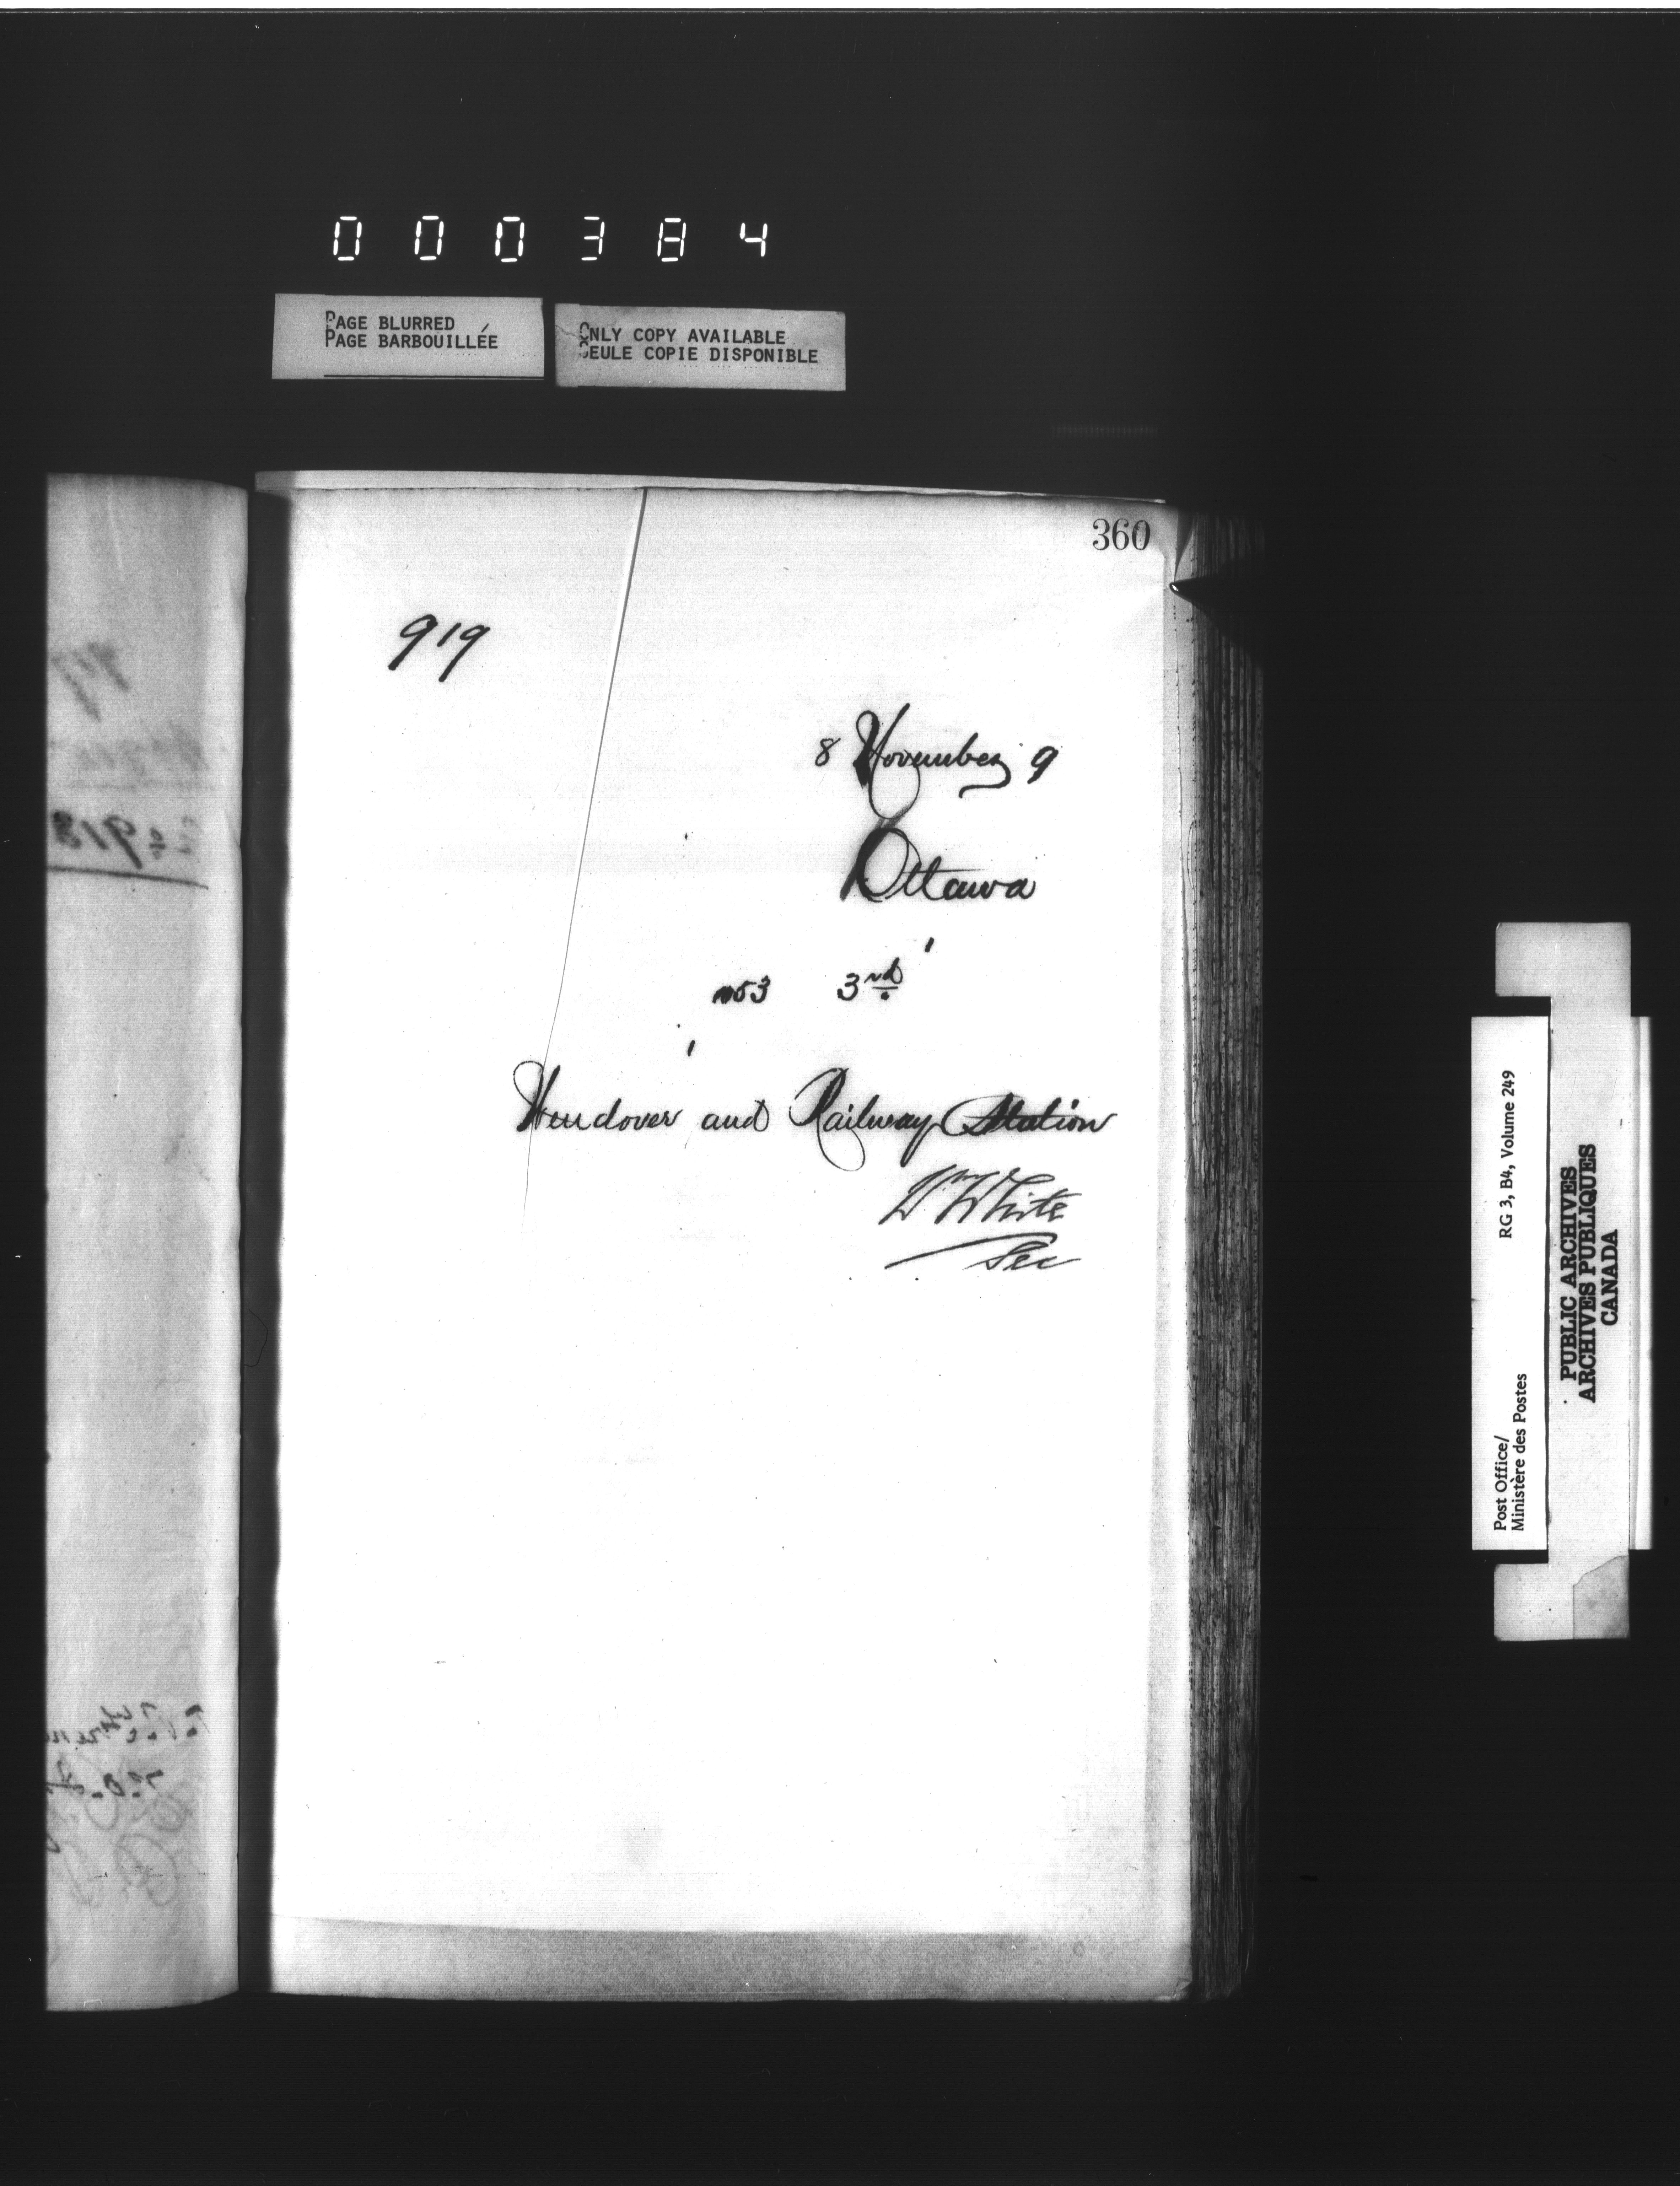 000384
PAGE BLURRED
PAGE BARBOUILLÉE
ONLY COPY AVAILABLE
SEULE COPIE DISPONIBLE
360
919
8 November 9
Ottawa
no 3 3nd
Wendover and Railway Station
Wm White
Sec
918
Post Office/
Ministère des Postes
RG 3, B4, Volume 249
PUBLIC ARCHIVES
ARCHIVES PUBLIQUES
CANADA